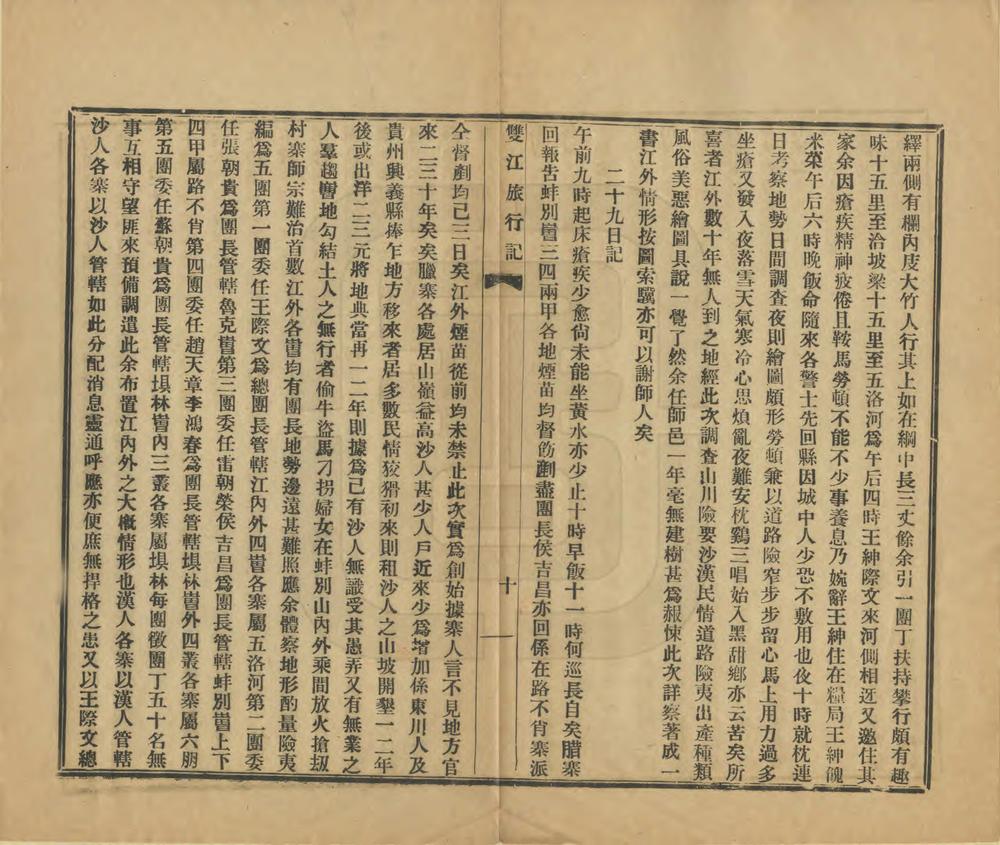 繹兩側有欄內皮大竹人行其上如在綱中長三丈餘余引一團丁扶持攀行頗有趣
味十五里至冶坡梁十五里至五洛河爲午后四時王紳際文來河側相迓又邀住其
家余因瘡疾精神疲倦且鞍馬勞頓不能不少事養息乃婉辭王紳住在糧局王紳餽
米菜午后六時晚飯命隨來各警士先回縣因城中人少恐不敷用也夜十時就枕連
日考察地勢日間調查夜則繪圖頗形勞頓兼以道路險窄步步留心馬上用力過多
坐瘡又發入夜落雪天氣寒冷心思煩亂夜難安枕鷄三唱始入黑甜鄉亦云苦矣所
喜者江外數十年無人到之地經此次調查山川險要沙漢民情道路險夷出產種類
風俗美惡繪圖具說一覺了然余任師邑一年毫無建樹甚爲赧悚此次詳察著成一
書江外情形按圖索驥亦可以謝師人矣
二十九日記
午前九時起床瘡疾少愈尙未能坐黃水亦少止十時早飯十一時何巡長自矣腊寨
回報告蚌別嘗三四兩甲各地煙苗均督飭剷盡團長侯吉昌亦回係在路不肯寨派
雙江旅行記
十
仝督剷均已三日矣江外煙苗從前均未禁止此次實爲創始據寨人言不見地方官
來二三十年矣矣臘寨各處居山嶺益高沙人甚少人戶近來少爲增加係東川人及
貴州興義縣捧乍地方移來者居多數民情狡猾初來則租沙人之山坡開墾一二年
後或出洋二三元將地典當再一二年則據爲己有沙人無識受其愚弄又有無業之
人羣趨嘗地勾結土人之無行者偷牛盜馬刁拐婦女在蚌別山內外乘間放火搶刼
村寨師宗難治首數江外各嘗均有團長地勢邊遠甚難照應余體察地形酌量險夷
編爲五團第一團委任王際文爲總團長管轄江內外四嘗各寨屬五洛河第二團委
任張朝貴爲團長管轄魯克嘗第三團委任雷朝榮侯吉昌爲團長管轄蚌別嘗上下
四甲屬路不肯第四團委任趙天章李鴻春爲團長管轄垻林嘗外四叢各寨屬六朋
第五團委任蘇朝貴爲團長管轄垻林嘗內三叢各寨屬垻林每團徵團丁五十名無
事互相守望匪來預備調遣此余布置江內外之大槪情形也漢人各寨以漢人管轄
沙人各寨以沙人管轄如此分配消息靈通呼應亦便庶無捍格之患又以王際文總